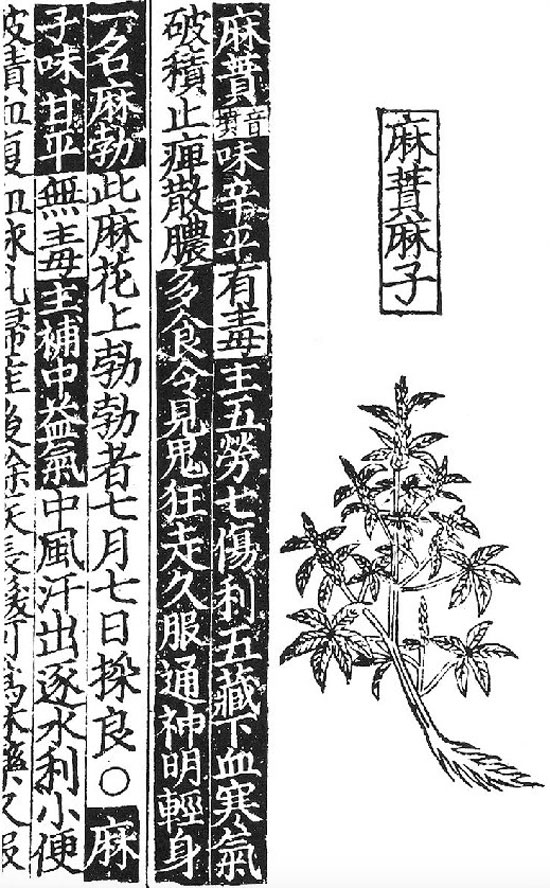 麻蕡麻子
麻蕡音墳味辛平有毒主五勞七傷利五藏下血寒氣
破積止痺散膿多食令見鬼狂走久服通神明輕身
一名麻勃此麻花上勃勃者七月七日採良○麻
子味甘平無毒主補中益氣中風汗出逐水利小便
破積血復血脉乳婦產後餘疾長髮可為沐藥久服